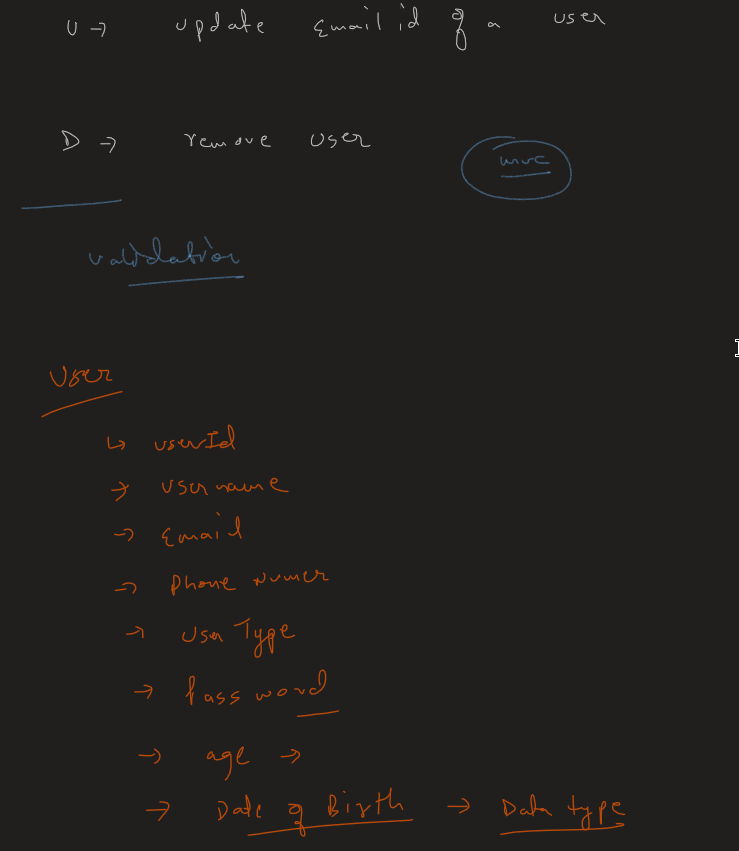 U → update Email id of a user
D → remove user
mvc
validation
User
↳ userId
→ username
→ Email
→ phone numer
→ User Type
→ Password
→ age →
→ Date of Birth → Data type